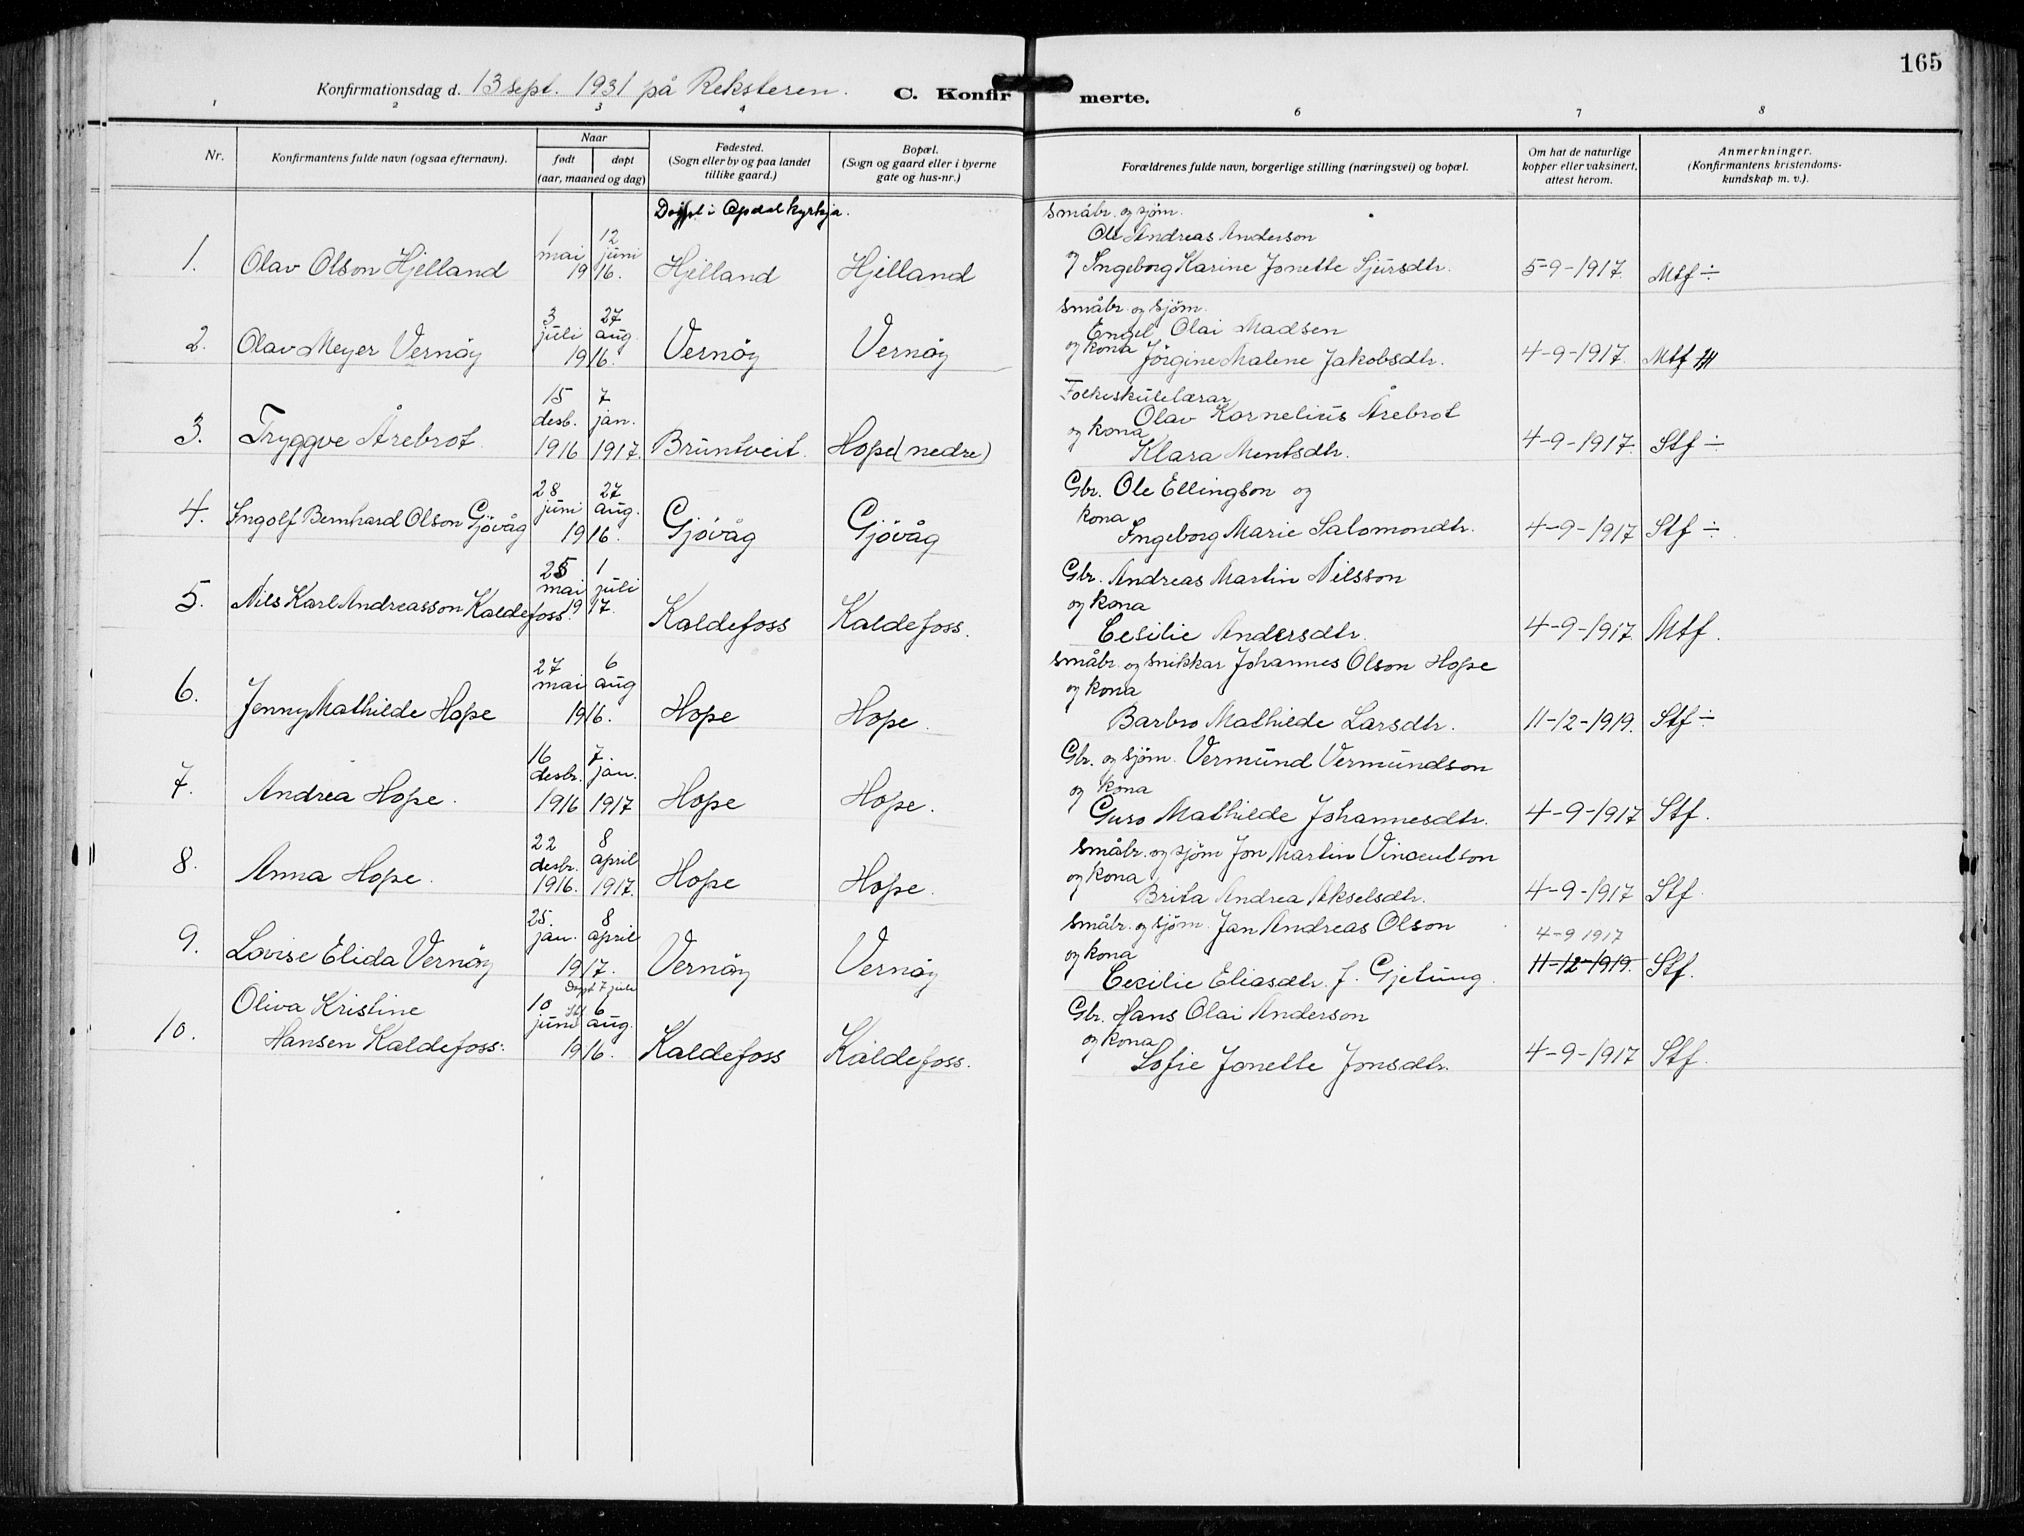 165
Konfirmationsdag d. 13 sept. 1931 på Reksteren.
C. Konfirmerte.
1 2 3 4 6 7 8
Nr.
Konfirmantens fulde navn (ogsaa efternavn).
Naar
født døpt
(aar, maaned og dag)
Fødested.
(Sogn eller by og paa landet
tillike gaard.)
Bopæl.
(Sogn og gaard eller i byerne
gate og hus-nr.)
Forældrenes fulde navn, borgerlige stilling (næringsvei) og bopæl.
Om hat de naturlige
kopper eller vaksinert,
attest herom.
Anmerkninger.
(Konfirmantens kristendoms-
kundskap m. v.).
Døypt i Opdal kyrkja.
småbr. og sjøm.
1 12 Ole Andreas Anderson
mai juni
1. Olav Olson Hjelland 1916. Hjelland Hjelland og Ingeborg Karine Jonette Sjursdtr. 5-9-1917. Mtf ÷
småbr. og sjøm.
3 27 Engel Olai Madsen
juli aug.
2. Olav Meyer Vernøy 1916. Vernøy Vernøy og kona Jörgine Malene Jakobsdtr. 4-9-1917. Mtf
15 7 Folkeskulelærar
desb. jan. Olav Kornelius Årebrot
3. Tryggve Årebrot 1916 1917. Bruntveit. Hope (nedre) og kona Klara Mentsdtr. 4-9-1917. Stf ÷
28 27 Gbr. Ole Ellingson og
juni aug.
4. Ingolf Bernhard Olson Gjövåg 1916. Gjövåg Gjövåg kona Ingeborg Marie Salomondtr. 4-9-1917 Stf ÷
25 1 Gbr. Andreas Martin Nilsson
mai juli
5. Nils Karl Andreasson Kaldefoss. 1917. Kaldefoss Kaldefoss. og kona Cesilie Andersdtr. 4-9-1917 Mtf.
27 6 småbr. og snikkar Johannes Olson Hope
mai aug
6. Jenny Mathilde Hope 1916. Hope Hope. og kona Barbro Mathilde Larsdtr. 11-12-1919. Stf ÷
16 7 Gbr. og sjøm. Vermund Vermundson
desbr. jan.
7. Andrea Hope. 1916 1917 Hope Hope. og kona Guro Mathilde Johannesdtr. 4-9-1917 Stf.
22 8 småbr. og sjøm Jon Martin Vincentson
desbr. april
8. Anna Hope. 1916. 1917. Hope Hope. og kona Brita Andrea Akselsdtr. 4-9-1917 Stf.
25. 8 småbr. og sjøm. Jan Andreas Olson 4-9 1917
jan. april
9. Lovise Elida Vernøy 1917. Vernøy Vernøy og kona Cecilie Eliasdtr. f. Gjetung. 11-12-1919. Stf.
Døypt 7 juli
Oliva Kristine 10 Stf 6 Gbr. Hans Olai Anderson
juni aug.
10. Hansen Kaldefoss. 1916. Kaldefoss Kaldefoss. og kona Sofie Jonette Jonsdtr. 4-9-1917 Stf.